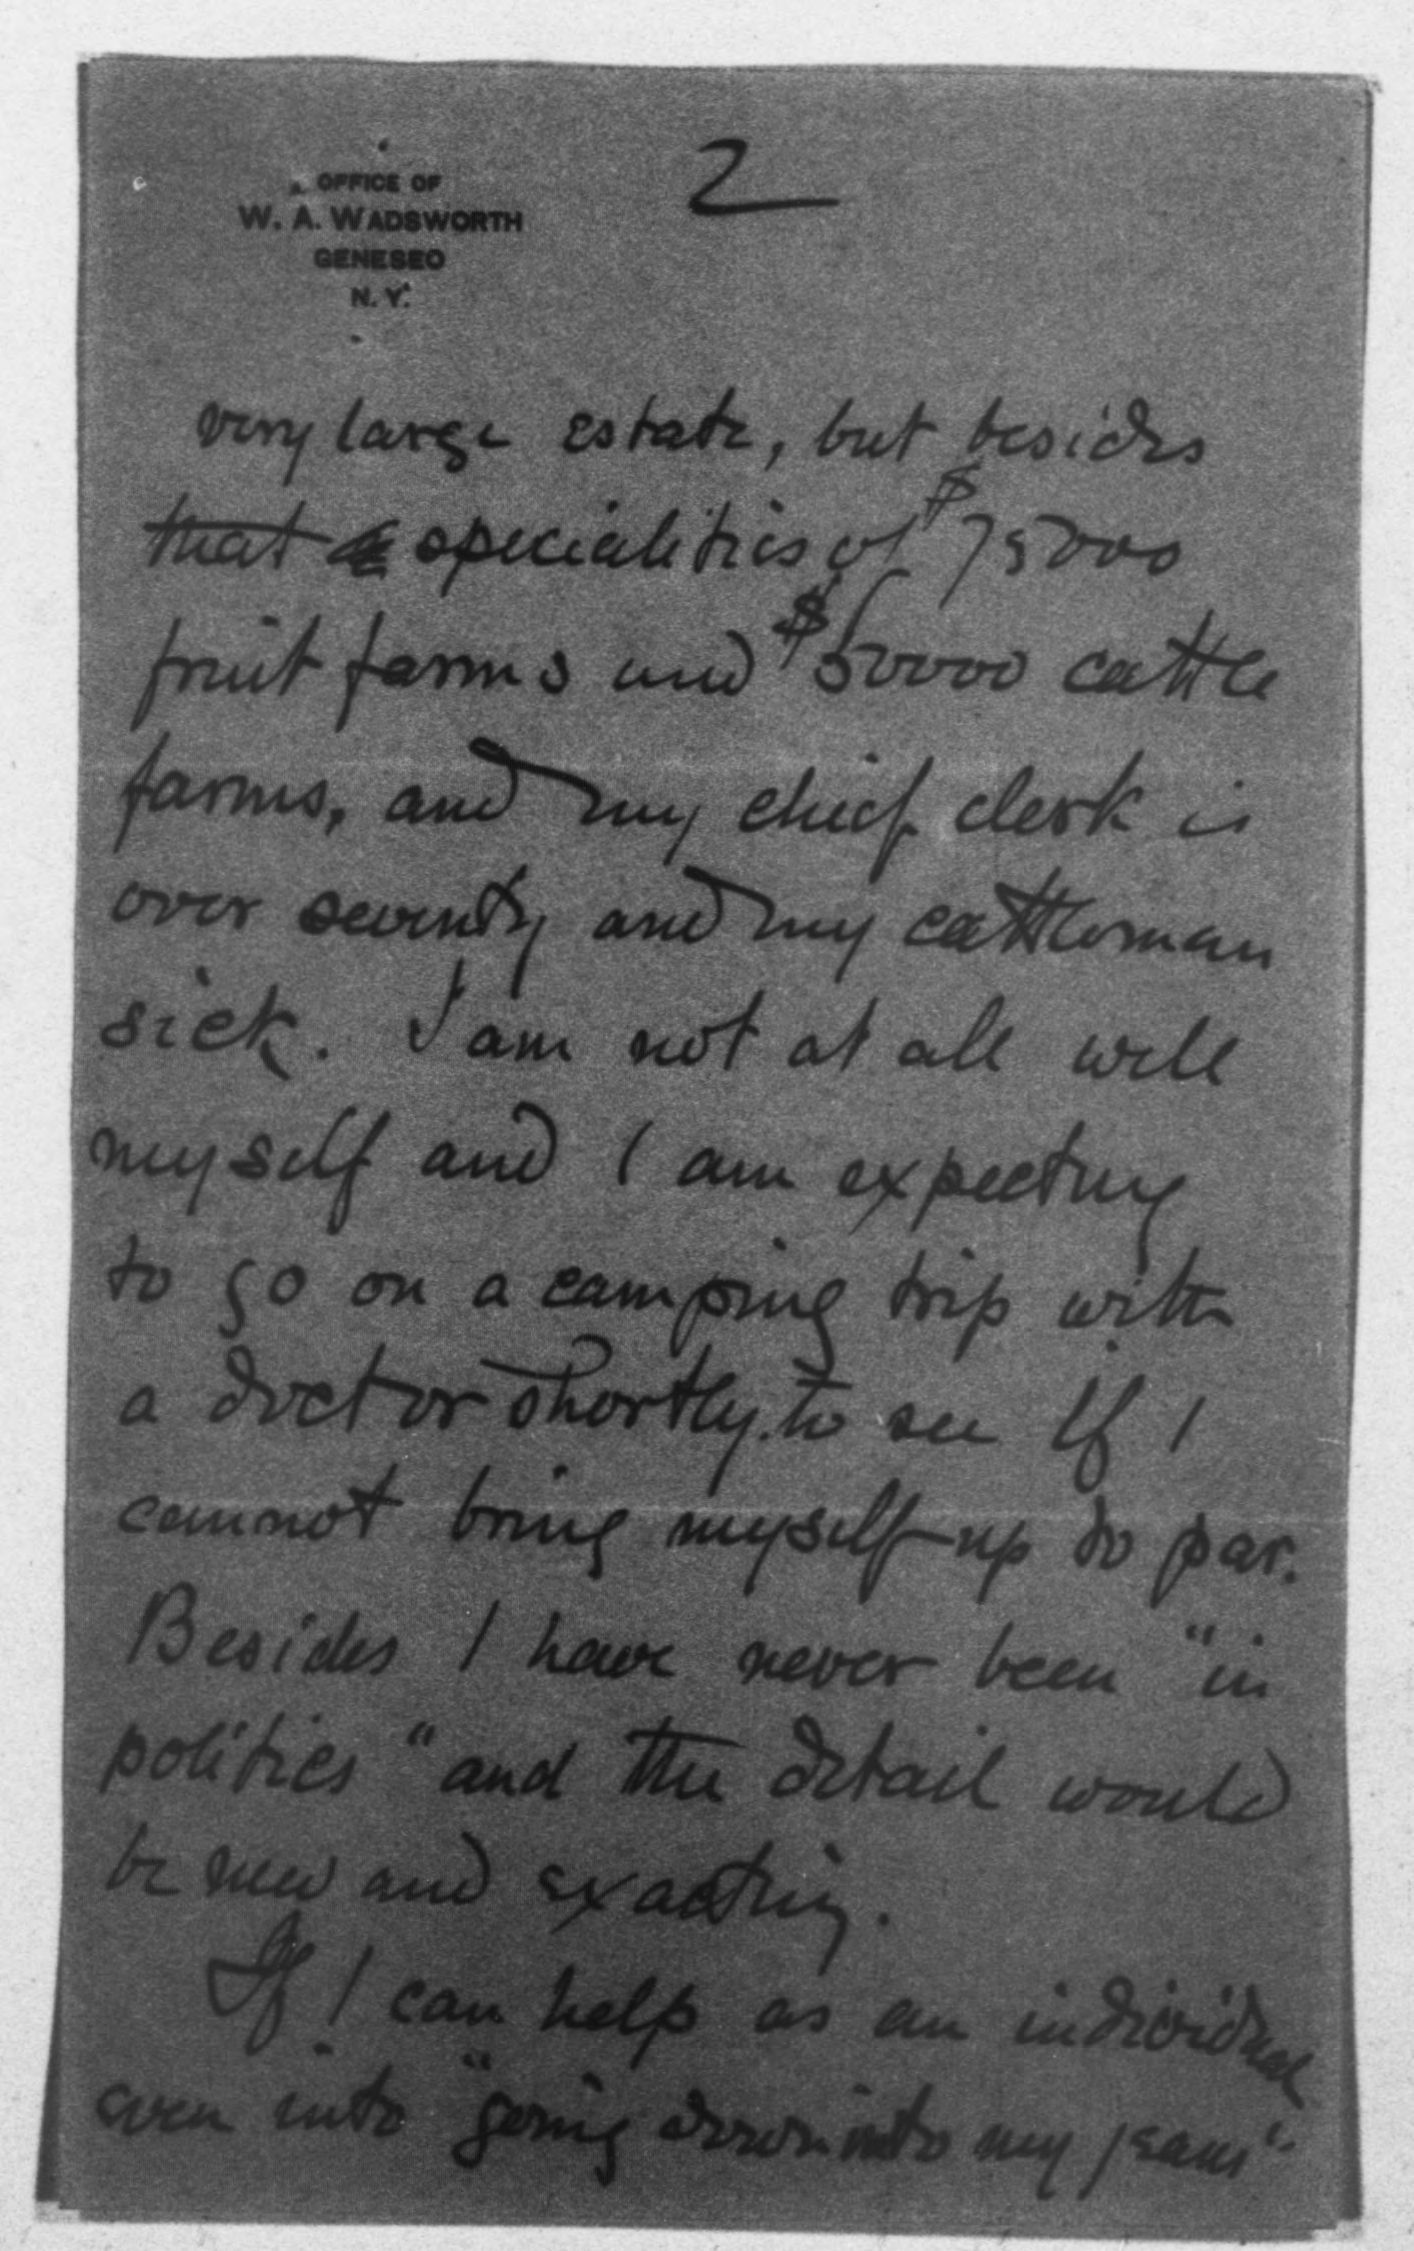 OFFICE OF
W. A. WADSWORTH
GENESEO
N. Y.
2
very large estate, but besides
that specialities of $75000
fruit farms and $50000 cattle
farms, and my chief clerk is
over seventy and my cattleman
sick. I am not at all well
myself and I am expecting
to go on a camping trip with
a doctor shortly to see if I
cannot bring myself up to par.
Besides I have never been "in
politics" and the detail would
be new and exacting.
If I can help as an individual
even into "going down into my jeans"